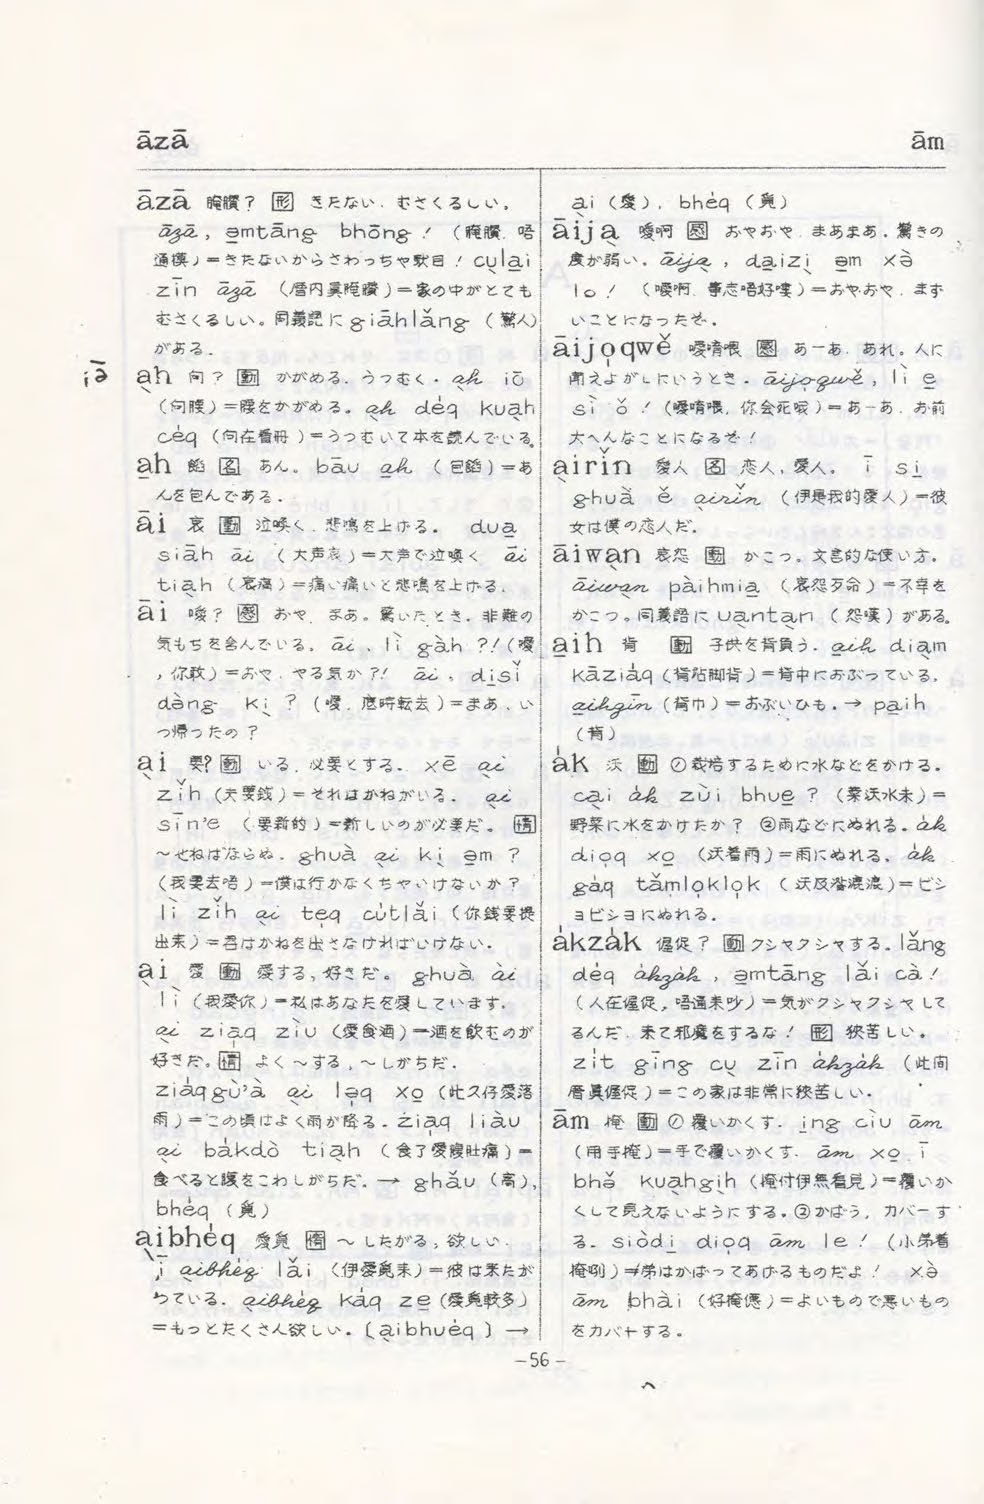 āzā
ām
āzā 腌臢? 形 きたない. むさくるしい。
āzā, ə̱mtāng bhōng! (腌臢, 唔
通摸)=きたないからさわっちゃ駄目! cu̱lai
zīn āzā (厝内真腌臢)=家の中がとても
むさくるしい。同義語に giāhlǎng (驚人)
がある.
iə̄
a̱h 向? 動 かがめる. うつむく. a̱h iō
(向腰)=腰をかがめる。 a̱h dėq kua̱h
cėq (向在看冊)=うつむいて本を読んでいる。
a̱h 餡 名 あん。 bāu a̱h (包餡)=あ
んを包んである.
āi 哀 動 泣喚く. 悲鳴を上げる。 dua̱
siāh āi (大声哀)=大声で泣喚く āi
tia̱h (哀痛)=痛い痛いと悲鳴を上げる.
āi 噯? 感 おや. まあ. 驚いたとき. 非難の
気もちを含んでいる。 āi, lì gàh ?! (噯
, 你敢)=おや. やる気か?! āi, di̱sǐ
dàng ki̱ ? (噯. 底時転去)=まあ. い
つ帰ったの?
a̱i 要? 動 いる. 必要とする. xē a̱i
zǐh (夫要銭)=それはかねがいる. a̱i
sīn'e (要新的)=新しいのが必要だ。 情
~せねばならぬ. ghuà a̱i ki̱ ə̱m ?
(我要去唔)=僕は行かなくちゃいけないか?
lì zǐh a̱i te̱q cu̍tlǎi (你銭要提
出来)=君はかねを出さなければいけない.
a̱i 愛 動 愛する, 好きだ。 ghuà a̱i
lì (我愛你)=私はあなたを愛しています.
a̱i zia̱q ziù (愛食酒)=酒を飲むのが
好きだ。情 よく~する, ~しがちだ.
ziáqgù'à a̱i lə̱q xo̱ (此久仔愛落
雨)=この頃はよく雨が降る. zia̱q liàu
a̱i bȧkdò tia̱h (食了愛腹肚痛)=
食べると腹をこわしがちだ. → ghǎu (高),
bhėq (覓)
a̱ibhėq 愛覓 情 ~したがる, 欲しい.
ī a̱ibhėq lǎi (伊愛覓来)=彼は来たが
っている. a̱ibhėq kȧq ze̱ (愛覓較多)
=もっとたくさん欲しい. 〔a̱ibhuėq〕 →
a̱i (愛), bhėq (覓)
āija̱ 噯啊 感 おやおや. まあまあ. 驚きの
度が弱い. āija̱, da̱izi̱ ə̱m xə̀
lo! (噯啊. 事志唔好嘍)=おやおや. まず
いことになったぞ.
āijo̱qwě 噯唷喂 感 あーあ. あれ。人に
聞えよがしにいうとき. āijo̱qwě, lì e̱
sì ǒ! (噯唷喂, 你会死哦)=あーあ. お前
大へんなことになるぞ!
a̱irǐn 愛人 名 恋人, 愛人。 ī si̱
ghuà ě a̱irǐn (伊是我的愛人)=彼
女は僕の恋人だ.
āiwa̱n 哀怨 動 かこつ。文言的な使い方.
āiwa̱n pàihmia̱ (哀怨歹命)=不幸を
かこつ。同義語に ua̱nta̱n (怨嘆)がある。
a̱ih 揹 動 子供を背負う. a̱ih diam
kāziȧq (揹跕脚脊)=背中におぶっている.
a̱ihgīn (揹巾)=おぶいひも. → pa̱ih
(揹)
ȧk 沃 動 ①栽培するために水などをかける.
ca̱i ȧk zùi bhue̱ ? (菜沃水未)=
野菜に水をかけたか? ②雨などにぬれる. ȧk
dio̱q xo̱ (沃着雨)=雨にぬれる. ȧk
gȧq tǎmlo̱klo̱k (沃及澹漉漉)=ビシ
ョビショにぬれる.
ȧkzȧk 偓促? 動 クシャクシャする. lǎng
dėq ȧkzȧk, ə̱mtāng lǎi cà!
(人在偓促, 唔通来吵)=気がクシャクシャして
るんだ. 来て邪魔をするな! 形 狭苦しい.
zi̍t gīng cu̱ zīn ȧkzȧk (此間
厝真偓促)=この家は非常に狭苦しい.
ām 掩 動 ①覆いかくす. i̱ng ciù ām
(用手掩)=手で覆いかくす. ām xo̱ ī
bhə̌ kua̱hgi̱h (掩付伊無看見)=覆いか
くして見えないようにする. ②かばう, カバーす
る. siòdi̱ dio̱q ām le! (小弟着
掩咧)=弟はかばってあげるものだよ! xə̀
ām bhài (好掩僫)=よいもので悪いもの
をカバーする.
-56-